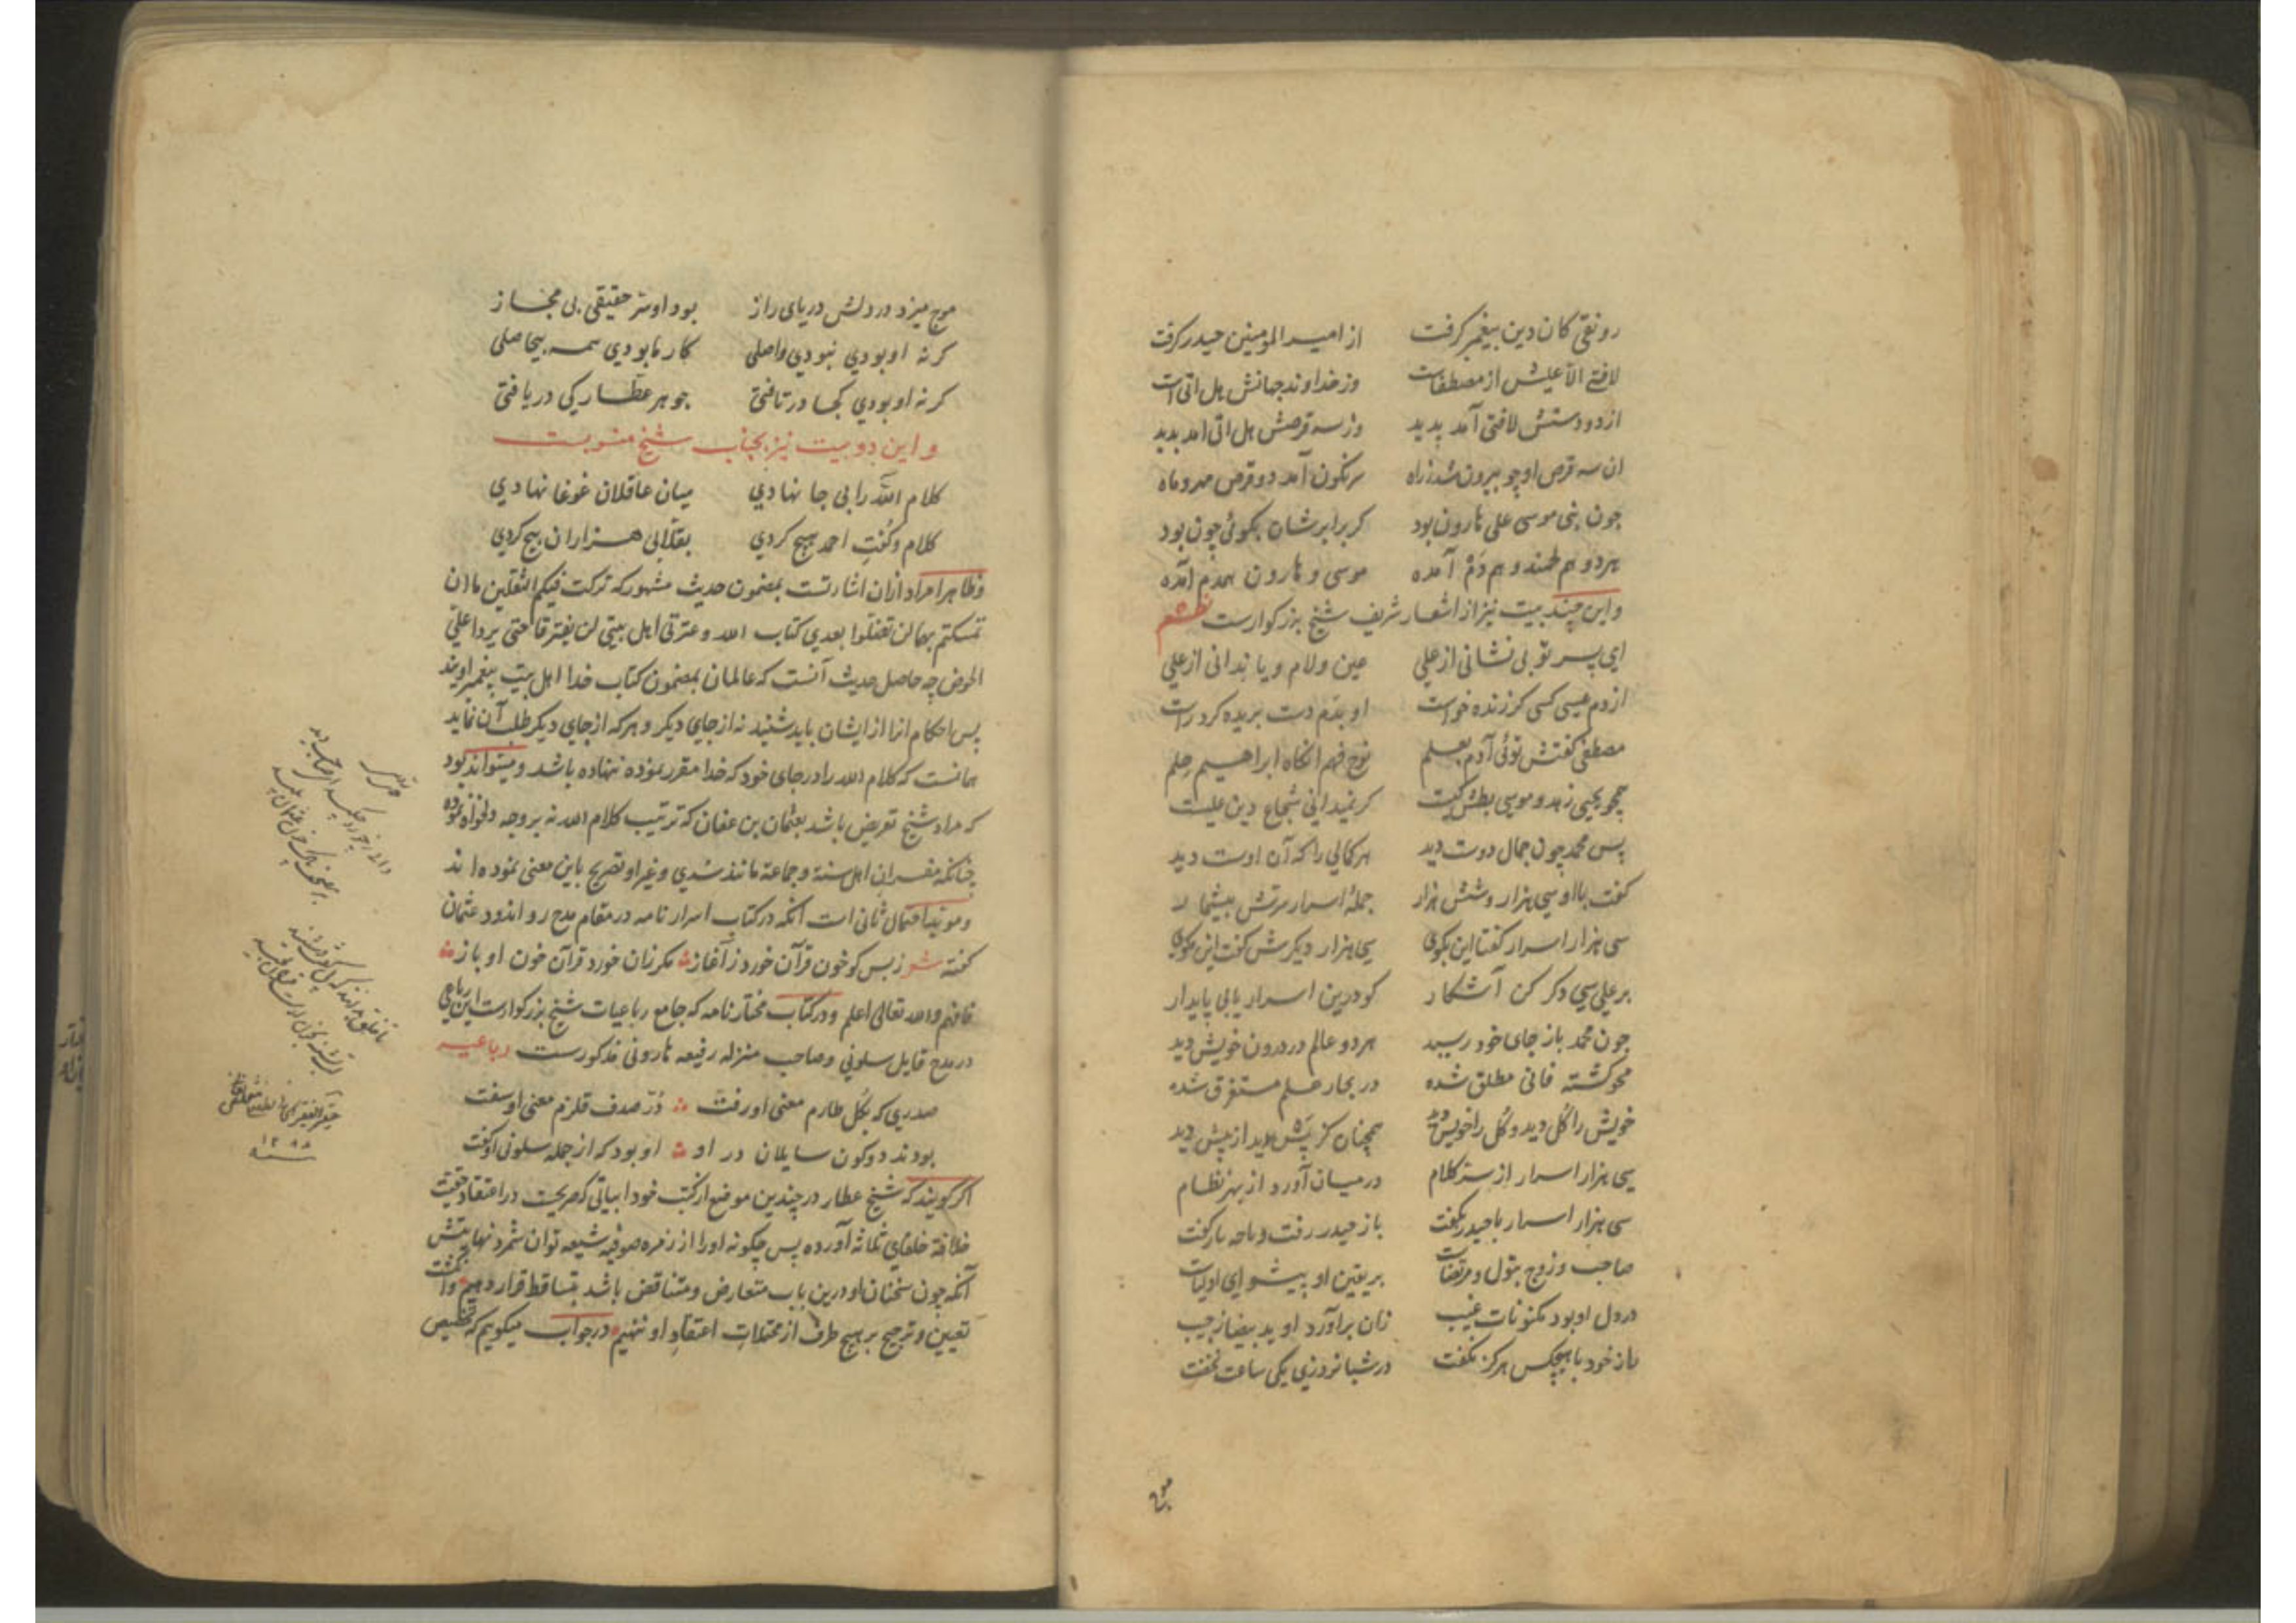 رونقی کان دین پیغمبر گرفت از امیر المومنین حیدر گرفت
لافتی الا علیش از مصطفاست وز خداوند جهانش هل اتی است
از دو دستش لافتی آمد پدید وز سه قرصش هل اتی آمد پدید
ان سه قرص او چو بیرون شد ز راه سرنگون آمد دو قرص مهر و ماه
چون نبی موسی علی هارون بود کر برابرشان بکوئی چون بود
هر دو هم و هم دم آمده موسی و هارون همدم آمده
و این چند بیت نیز از اشعار شریف شیخ بزرکوارست
ای پسر تو بی نشانی از علی عین و لام و یا بدانی از علی
از دم عیسی کسی کر زنده خواست او بدم دست بریده کرد راست
مصطفی کفتش توئی آدم بعلم نوح فهم انکاه ابراهیم حلم
همچو یحیی زهد و موسی بطش کیست کر نمیدانی شجاع دین علیست
پس محمد چون جمال دوست دید هر کمالی را که آن اوست دید
کفت با او سی هزار و شش هزار جملهٔ اسرار سرتش بیشمار
سی هزار اسرار کفتا این بکوی سی هزار دیکرش کفت این مکوی
بر علی سی دکر کن آشکار کو درین اسرار یابی پایدار
چون محمد باز جای خود رسید هر دو عالم در درون خویش دید
محو کشته فانی مطلق شده در بحار علم مستغرق شده
خویش را کل دید و کل را خویش دید همچنان کز پس بدید از پیش دید
سی هزار اسرار از سر کلام در میان آورد از بهر نظام
سی هزار اسرار با حیدر بکفت باز حیدر رفت و با چه باز کفت
صاحب و زوج بتول و مرتضاست بر یقین او پیشوای اولیاست
در دل او بود مکنونات غیب زان برآورد او ید بیضا ز جیب
راز خود با هیچکس هرکز نکفت در شبانروزی یکی ساعت نخفت
موج میزد در دلش دریای راز بود او سر حقیقی بی مجاز
کر نه او بودی نبودی واصلی کار ما بودی همه بیحاصلی
کر نه او بودی کجا در تافتی جوهر عطار کی دریافتی
و این دو بیت نیز بجناب شیخ منسوبست
کلام الله را بی جا نهادی میان عاقلان غوغا نهادی
کلام و کفت احمد هیچ کردی بقلابی هزاران پیچ کردی
و ظاهرا مراد ازان اشارتست بمضمون حدیث مشهور که ترکت فیکم الثقلین ما ان
تمسکتم بهما لن تضلوا بعدی کتاب الله و عترتی اهل بیتی لن یفترقا حتی یردا علیّ
الحوض چه حاصل حدیث آنست که عالمان بمضمون کتاب خدا اهل بیت پیغمبر اویند
پس احکام انرا از ایشان باید شنید نه از جای دیکر و هر که از جای دیکر طلب آن نماید
همانست که کلام الله را در جای خود که خدا مقرر نموده ننهاده باشد و میتواند بود
که مراد شیخ تعریض باشد بعثمان بن عفان که ترتیب کلام الله نه بر وجه دلخواه نموده
چنانکه مفسران اهل سنة و جماعة مانند سدی و غیر او تصریح باین معنی نموده اند
و موید احتمال ثانی است آنکه در کتاب اسرار نامه در مقام مدح رو اندود عثمان
کفته شعر ز بس کو خون قرآن خورد ز آغاز مکر زان خورد قرآن خون او باز
فافهم والله تعالی اعلم و در کتاب مختار نامه که جامع رباعیات شیخ بزرکوارست این رباعی
در مدح قایل سلونی و صاحب منزله رفیعه هارونی مذکورست رباعیه
صدری که بکل طارم معنی او رفت درّ صدف قلزم معنی او سفت
بودند دو کون سایلان در او او بود که از جمله سلونی او کفت
اکر کویند که شیخ عطار در چندین موضع از کتب خود ابیاتی که صریحست در اعتقاد حقیت
خلافة خلفای ثلاثه آورده پس چکونه او را از زمره صوفیه شیعه توان شمرد نهایتش
آنکه چون سخنان او درین باب متعارض و متناقض باشد بتساقط قرار دهیم و انکشت
تعیین و ترجیح بر هیچ طرف از محتملات اعتقاد او ننهیم در جواب میکویم که تخلیص